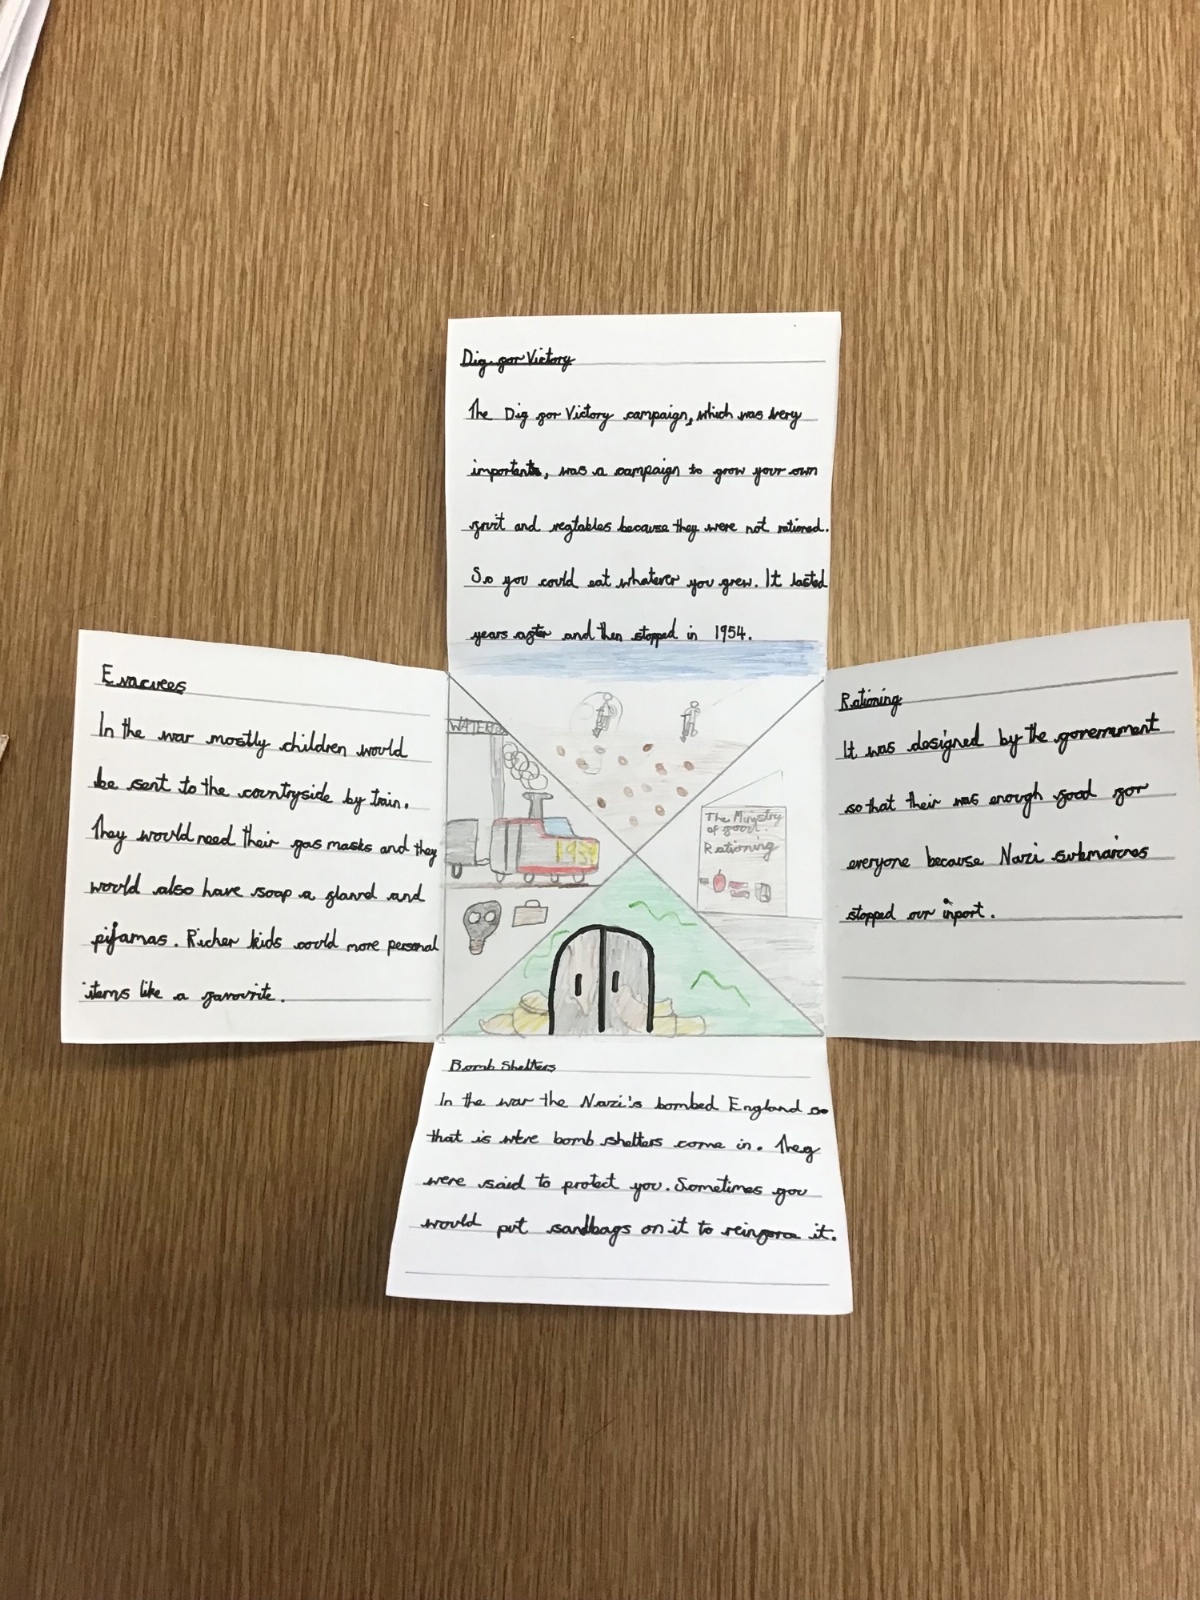 Dig for Victory
The Dig for Victory campaign, which was very
important, was a campaign to grow your own
fruit and vegtables because they were not rationed.
So you could eat whatever you grew. It lasted
years after and then stopped in 1954.
Evacuees
In the war mostly children would
be sent to the countryside by train.
They would need their gas masks and they
would also have soap a flannel and
pijamas. Richer kids could more personal
items like a favourite.
WATER
1939
The Ministry
of food.
Rationing
Rationing
It was designed by the government
so that their was enough food for
everyone because Nazi submarines
stopped our inport.
Bomb Shelters
In the war the Nazi's bombed England so
that is were bomb shelters come in. They
were said to protect you. Sometimes you
would put sandbags on it to reinforce it.